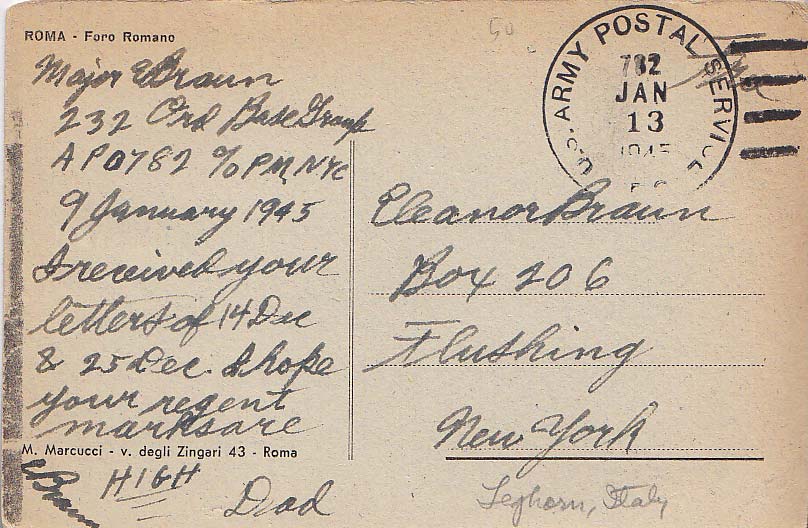 ROMA - Foro Romano
Major E Braun
232 Ord Base Group
APO 782 c/o PM, NYC
9 January 1945
I received your
letters of 14 Dec
& 25 Dec. I hope
your regent
marks are
HIGH
Dad
M. Marcucci - v. degli Zingari 43 - Roma
E Braun
50
U.S. ARMY POSTAL SERVICE
782
JAN
13
1945
Eleanor Braun
Box 206
Flushing
New York
Leghorn, Italy